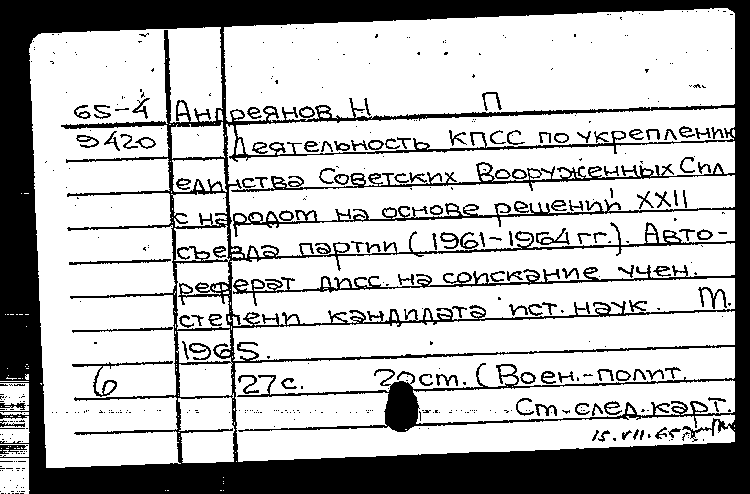 65-4 Андреянов, Н П
9420 Деятельность КПСС по укреплению
единства Советских Вооруженных Сил
с народом на основе решений XXII
съезда партии (1961-1964 гг.). Авто-
реферат дисс. на соискание учен.
степени кандидата ист. наук. М.
1965.
6 27 с. 20 см. (Воен.-полит.
См. след. карт.
15.VII.65